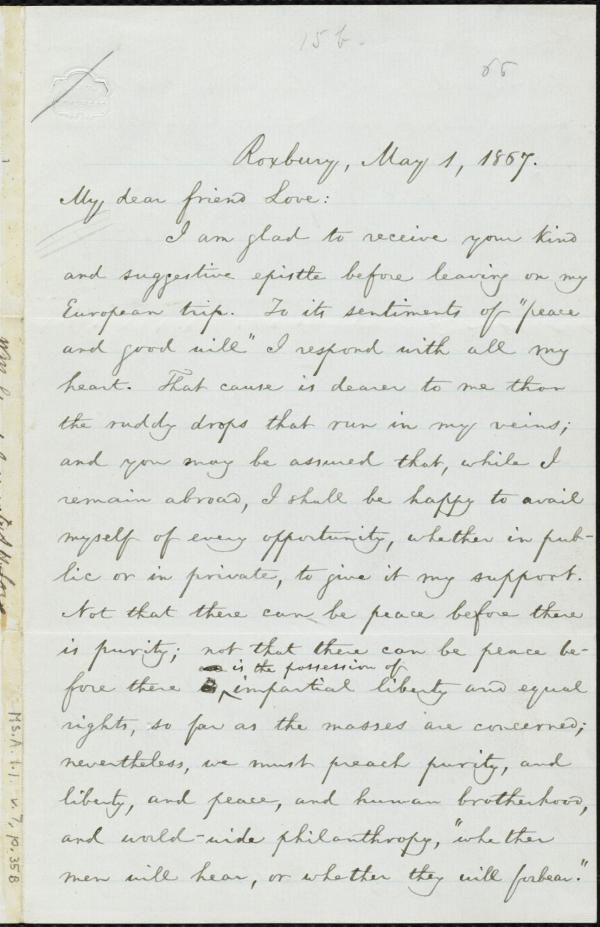 15 b.
66
Roxbury, May 1, 1867.
My dear friend Love:
I am glad to receive your kind
and suggestive epistle before leaving on my
European trip. To its sentiments of "peace
and good will" I respond with all my
heart. That cause is dearer to me than
the ruddy drops that run in my veins;
and you may be assured that, while I
remain abroad, I shall be happy to avail
myself of every opportunity, whether in pub-
lic or in private, to give it my support.
Not that there can be peace before there
is purity; not that there can be peace be-
is the possession of
fore there impartial liberty and equal
rights, so far as the masses are concerned;
nevertheless, we must preach purity, and
liberty, and peace, and human brotherhood,
and world-wide philanthropy, "whether
men will hear, or whether they will forbear."
Ms.A.1.1. v.7, p.35B